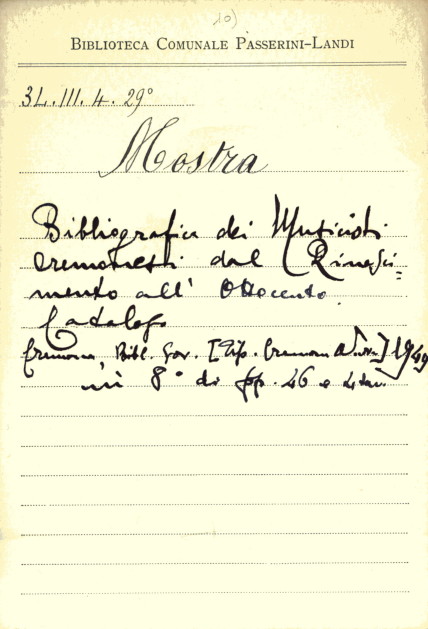 10)
BIBLIOTECA COMUNALE PASSERINI-LANDI
3L.III.4.29°
Mostra
Bibliografica dei Musicisti
cremonesi dal Rinasci=
mento all' Ottocento.
Catalogo
Cremona, Bibl. Gov. [Tip. Cremona Nuova] 1949
in 8° di pp. 46 e 4 tav.